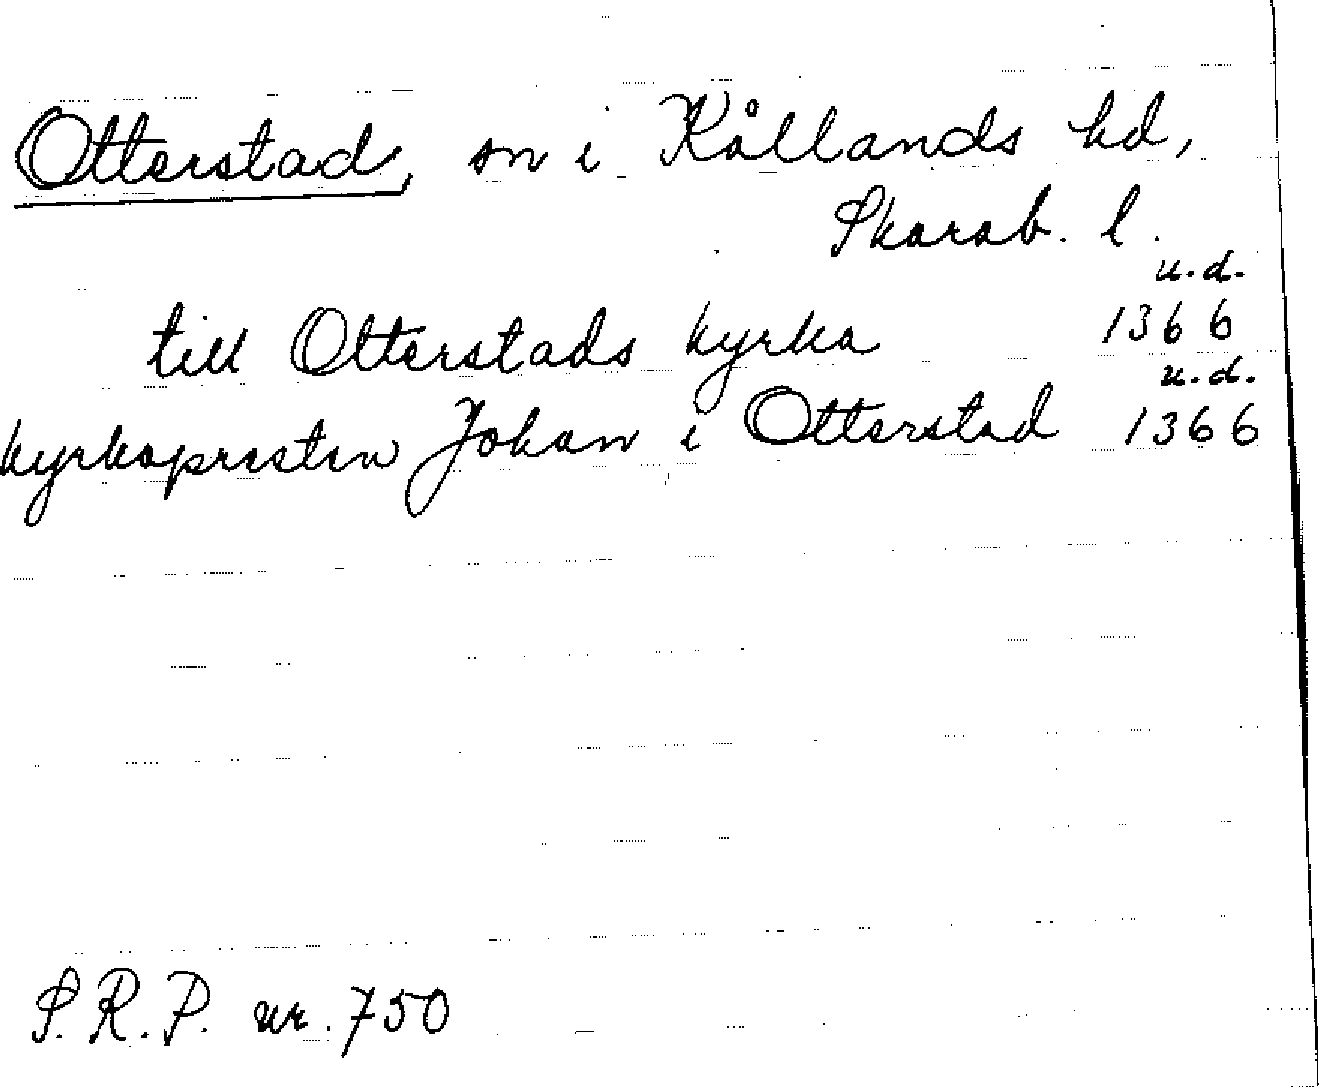 Otterstad, sn i Kållands hd,
Skarab. l.
till Otterstads kyrka u.d. 1366
kyrkopresten Johan i Otterstad u.d. 1366
S.R.P. nr. 750